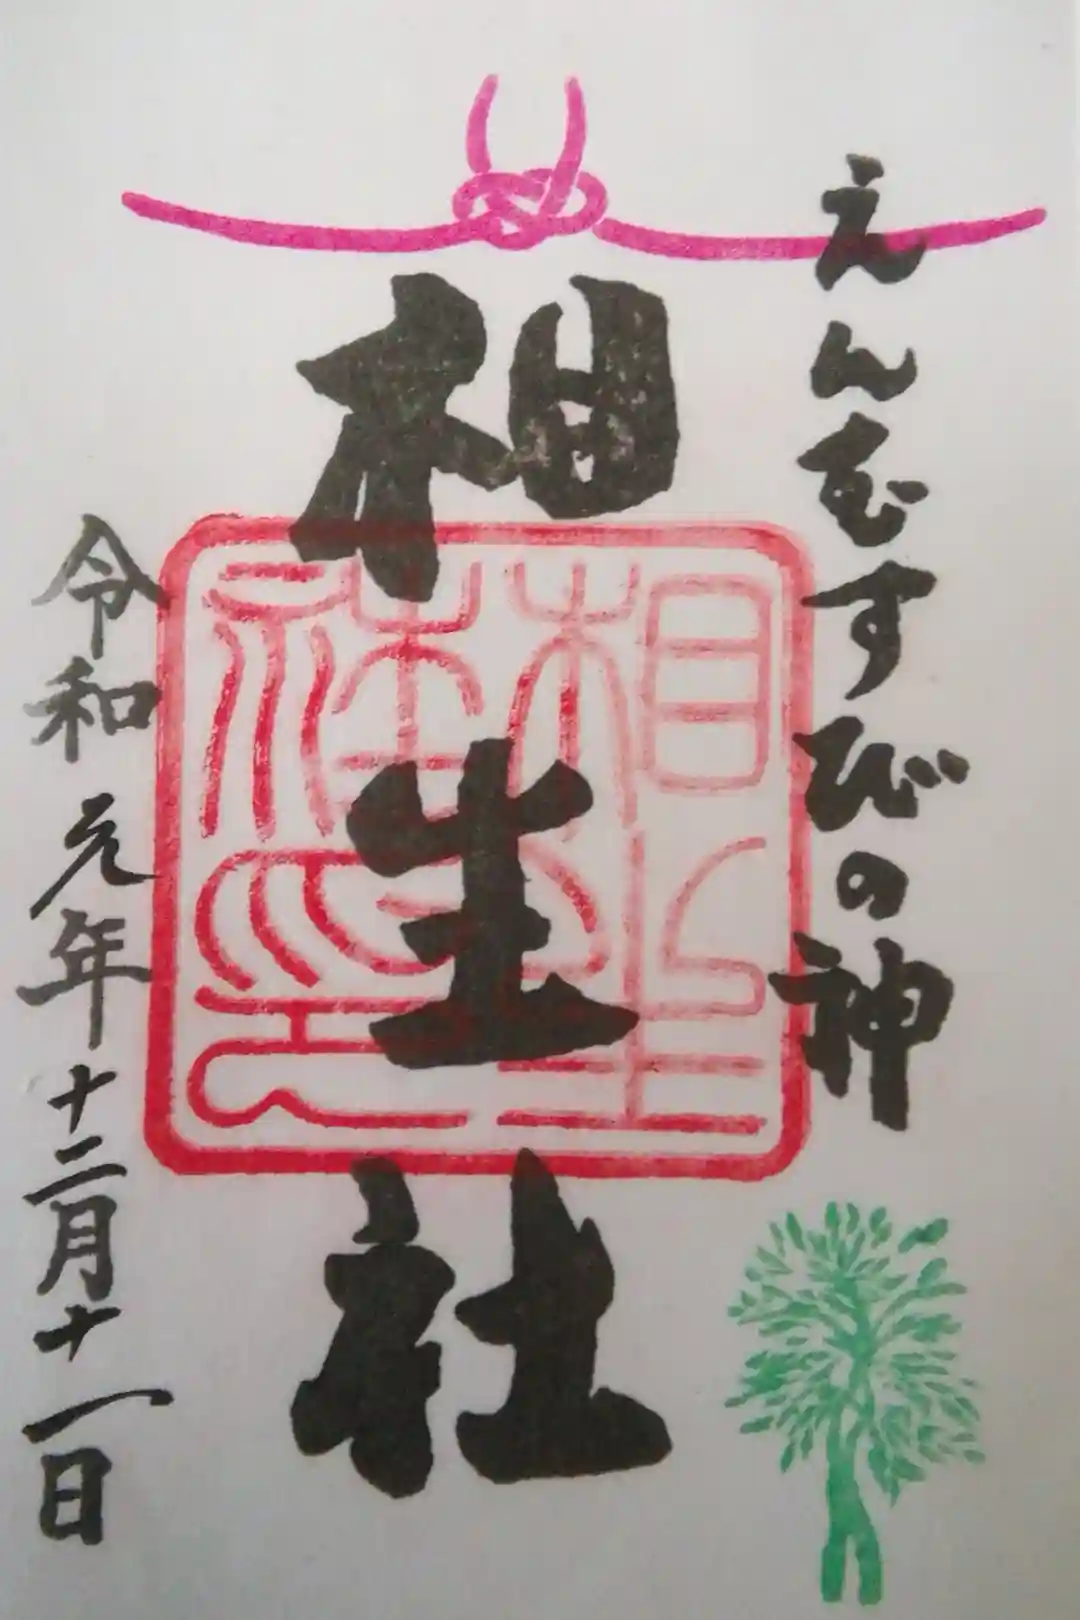 えんむすびの神
相生社
相生社神印
令和元年十二月十一日